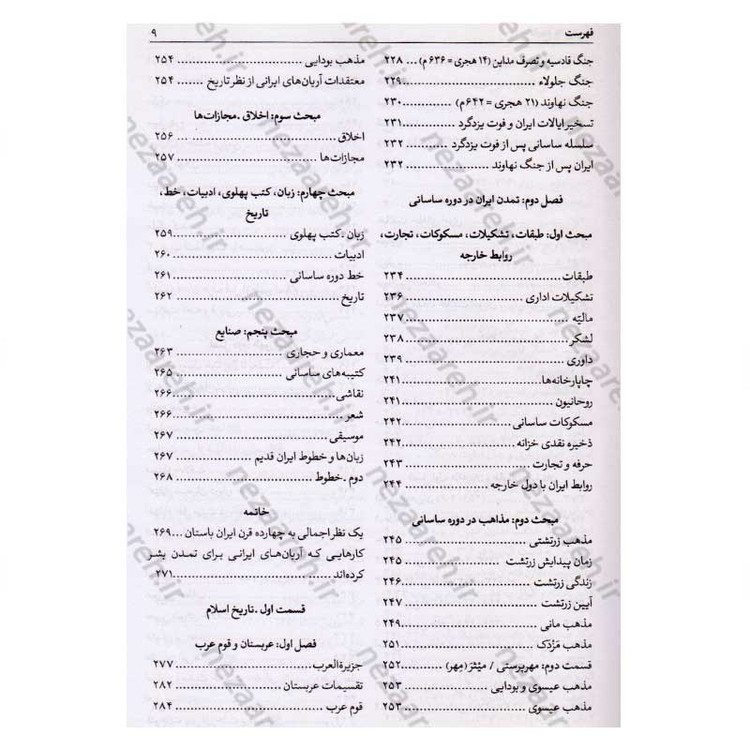 فهرست ۹
جنگ قادسیه و تصرف مداین (۱۴ هجری = ۶۳۶ م) ... ۲۲۸
جنگ جلولاء ... ۲۲۹
جنگ نهاوند (۲۱ هجری = ۶۴۲ م) ... ۲۳۰
تسخیر ایالات ایران و فوت یزدگرد ... ۲۳۱
سلسله ساسانی پس از فوت یزدگرد ... ۲۳۲
ایران پس از جنگ نهاوند ... ۲۳۲
فصل دوم: تمدن ایران در دوره ساسانی
مبحث اول: طبقات، تشکیلات، مسکوکات، تجارت،
روابط خارجه
طبقات ... ۲۳۴
تشکیلات اداری ... ۲۳۶
مالیّه ... ۲۳۷
لشکر ... ۲۳۸
داوری ... ۲۳۹
چاپارخانه‌ها ... ۲۴۱
روحانیون ... ۲۴۱
مسکوکات ساسانی ... ۲۴۲
ذخیره نقدی خزانه ... ۲۴۲
حرفه و تجارت ... ۲۴۳
روابط ایران با دول خارجه ... ۲۴۴
مبحث دوم: مذاهب در دوره ساسانی
مذهب زرتشتی ... ۲۴۵
زمان پیدایش زرتشت ... ۲۴۵
زندگی زرتشت ... ۲۴۶
آیین زرتشت ... ۲۴۷
مذهب مانی ... ۲۴۹
مذهب مَزدَک ... ۲۵۱
قسمت دوم: مهرپرستی / میثْرَ (مِهر) ... ۲۵۲
مذهب عیسوی و بودایی ... ۲۵۳
مذهب عیسوی ... ۲۵۳
مذهب بودایی ... ۲۵۴
معتقدات آریان‌های ایرانی از نظر تاریخ ... ۲۵۴
مبحث سوم: اخلاق .مجازات‌ها
اخلاق ... ۲۵۶
مجازات‌ها ... ۲۵۷
مبحث چهارم: زبان، کتب پهلوی، ادبیات، خط،
تاریخ
زبان .کتب پهلوی ... ۲۵۹
ادبیات ... ۲۶۰
خط دوره ساسانی ... ۲۶۱
تاریخ ... ۲۶۲
مبحث پنجم: صنایع
معماری و حجاری ... ۲۶۳
کتیبه‌های ساسانی ... ۲۶۵
نقاشی ... ۲۶۶
شعر ... ۲۶۶
موسیقی ... ۲۶۷
زبان‌ها و خطوط ایران قدیم ... ۲۶۷
دوم .خطوط ... ۲۶۸
خاتمه
یک نظر اجمالی به چهارده قرن ایران باستان ... ۲۶۹
کارهایی که آریان‌های ایرانی برای تمدن بشر
کرده‌اند ... ۲۷۱
قسمت اول .تاریخ اسلام
فصل اول: عربستان و قوم عرب
جزیرةالعرب ... ۲۷۷
تقسیمات عربستان ... ۲۸۲
قوم عرب ... ۲۸۴
nezaareh.ir